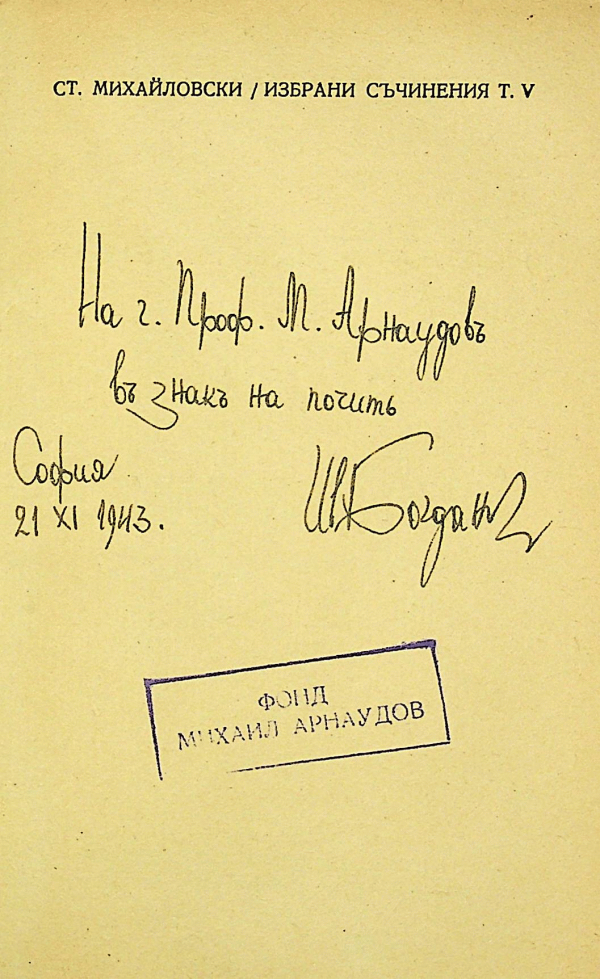 СТ. МИХАЙЛОВСКИ / ИЗБРАНИ СЪЧИНЕНИЯ Т. V
На г. Проф. М. Арнаудовъ
въ знакъ на почить
София
21 XI 1943.
ФОНД
МИХАИЛ АРНАУДОВ